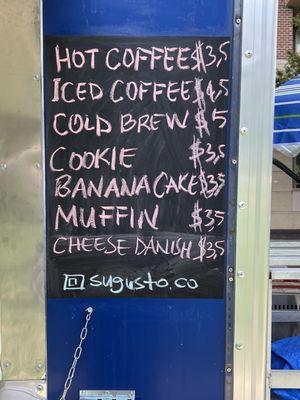 HOT COFFEE $3,5
ICED COFFEE $4,5
COLD BREW $5
COOKIE $3,5
BANANA CAKE $3,5
MUFFIN $3,5
CHEESE DANISH $3,5
sugusto.co